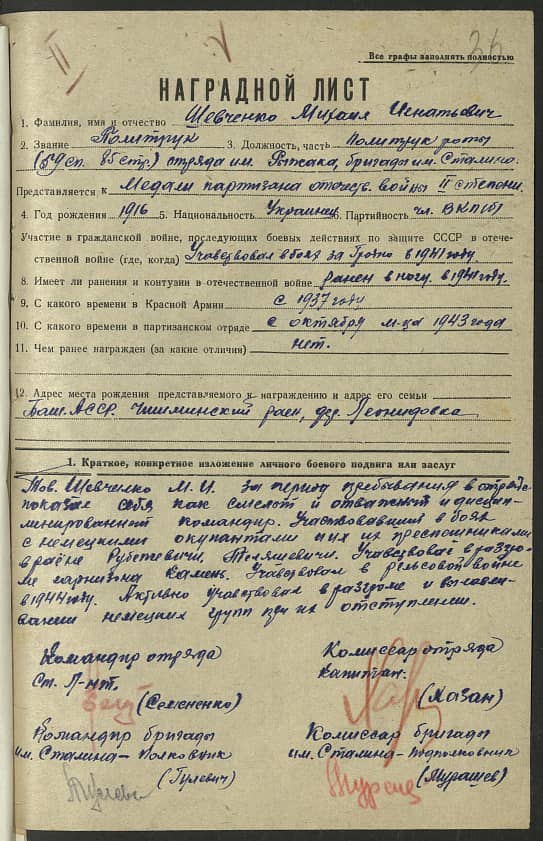 II
V
36
Все графы заполнять полностью
НАГРАДНОЙ ЛИСТ
1. Фамилия, имя и отчество Шевченко Михаил Игнатьевич
2. Звание Политрук 3. Должность, часть политрук роты
(59 сп. 85 стр.) отряда им. Рыжака, бригады им. Сталина.
Представляется к Медали партизана отечеств. войны II степени.
4. Год рождения 1916 5. Национальность Украинец 6. Партийность чл. ВКП(б)
Участие в гражданской войне, последующих боевых действиях по защите СССР в отече-
ственной войне (где, когда) Учавствовал в боях за Гродно в 1941 году.
8. Имеет ли ранения и контузии в отечественной войне ранен в ногу. в 1941 году.
9. С какого времени в Красной Армии с 1937 году
10. С какого времени в партизанском отряде с октября м-ца 1943 года
11. Чем ранее награжден (за какие отличия) нет.
12. Адрес места рождения представляемого к награждению и адрес его семьи
Баш. АССР. Чишминский раен, дер.
1. Краткое, конкретное изложение личного боевого подвига или заслуг
Тов. Шевченко М. И. за период пребывания в отряде
показал себя как смелый и отважный и дисцип-
линированный командир. Участвовавший в боях
с немецкими окупантами и их преспошниками
в раёне Рубежевичи, Теляшевичи. Учавствовал в разгро-
ме гарнизона Камень. Учавствовал в рельсовой войне
в 1944 году. Активно учавствовал в разгроме и вылавли-
вании немецких групп при их отступлении.
Командир отряда Комиссар отряда
Ст. Л-нт. Капитан.
(Семененко) (Мазан)
Командир бригады Комиссар бригады
им. Сталина – Полковник им. Сталина – подполковник
(Гулевич) (Мурашев)